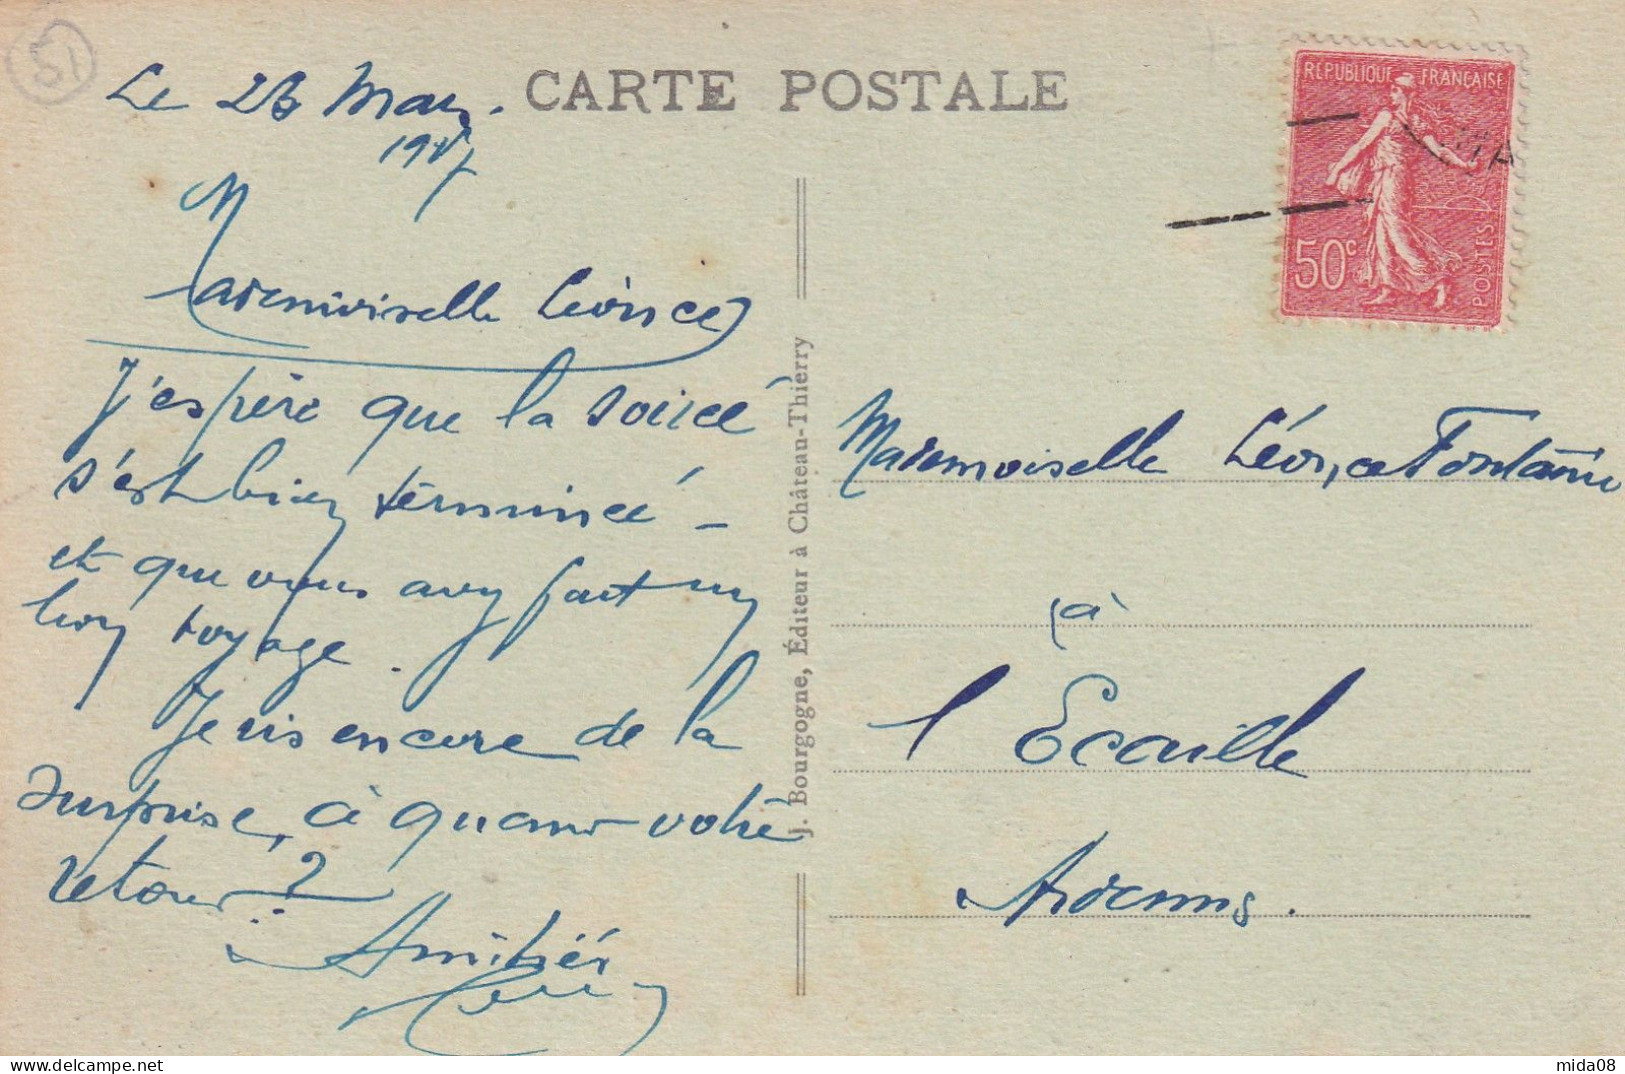 51
CARTE POSTALE
Le 26 Mars.
Mademoiselle Léonce
J'espère que la soirée
s'est bien terminée -
et que vous avez fait un
bon voyage.
Je ris encore de la
surprise, à quand votre
retour ?
Amitiés
J. Bourgogne, Éditeur à Château-Thierry
REPUBLIQUE FRANÇAISE
50c
POSTES
Mademoiselle Léonce Fontaine
à
l'Ecaille
Ardennes.
mida08